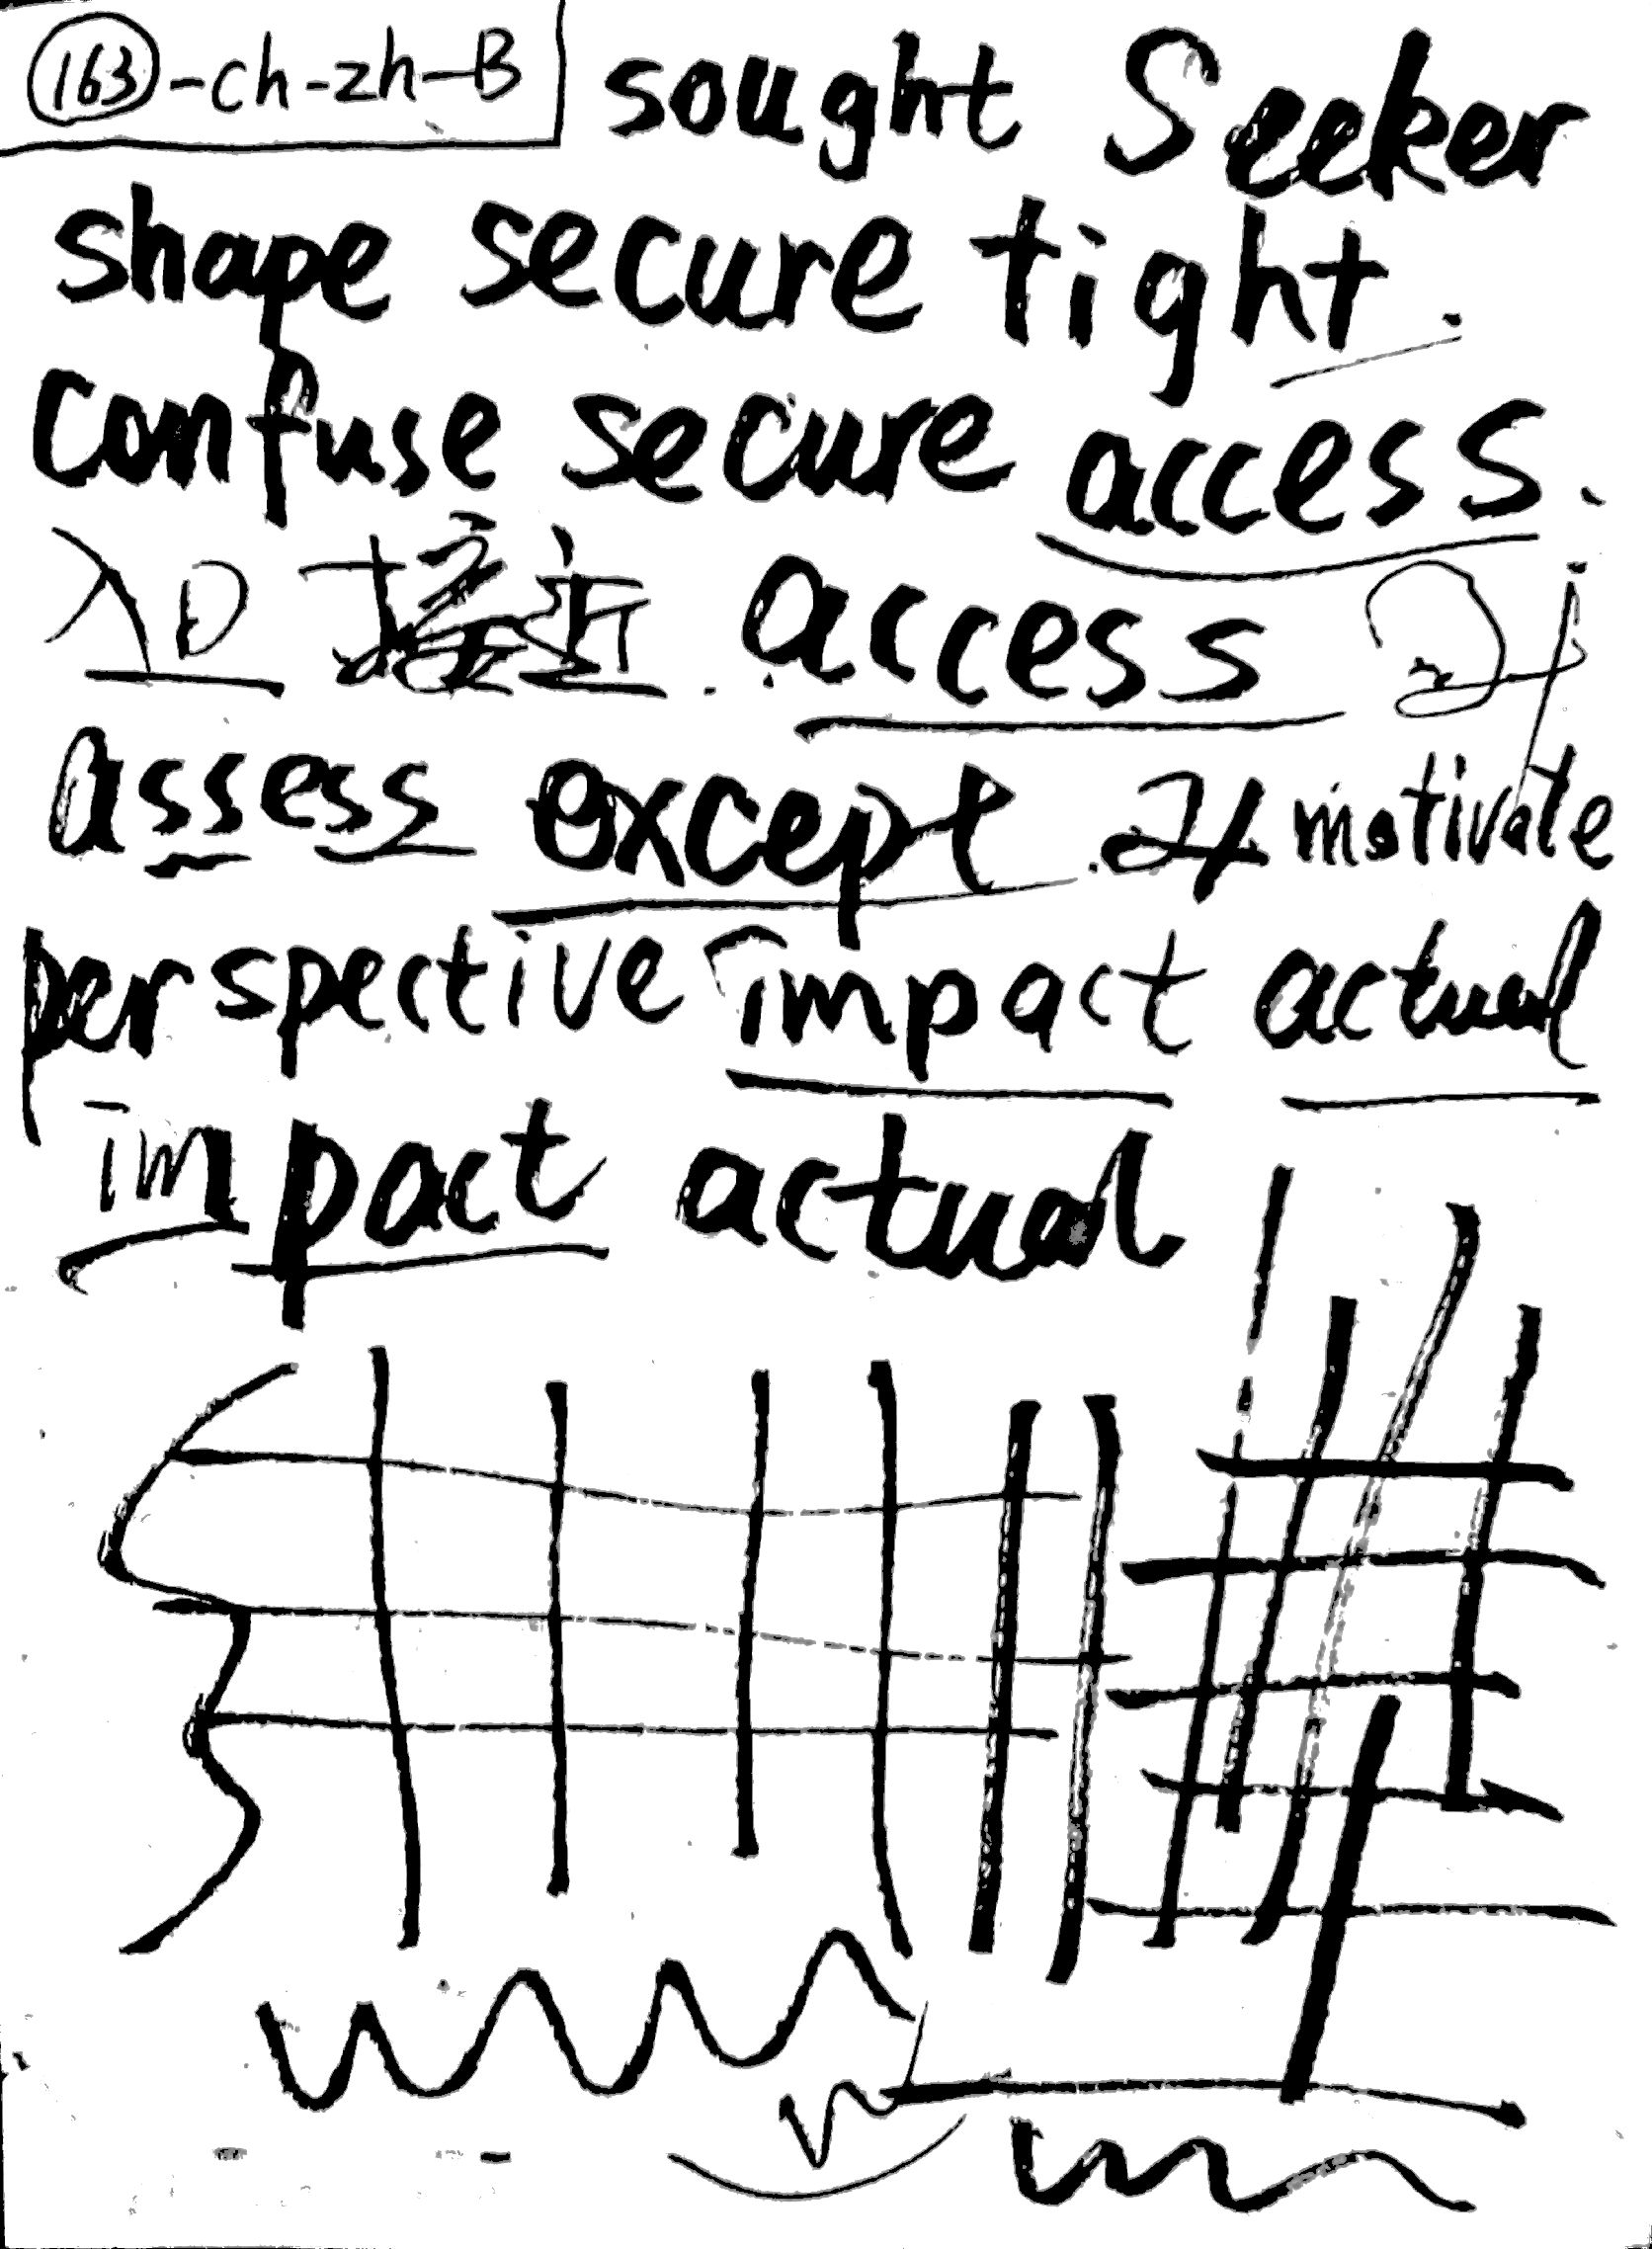 163-ch-zh-B sought Seeker
shape secure tight.
confuse secure access.
入口 接近. access
assess except. motivate
perspective impact actual
impact actual